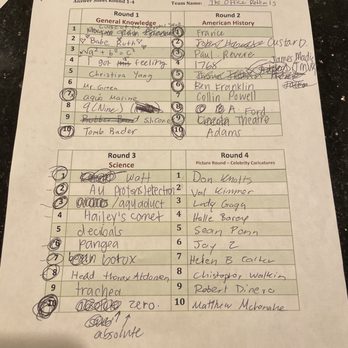 Answer Sheet Round 1-4
Team Name: The Office Rebels
Round 1
General Knowledge
1
2 Babe Ruth
3 a² + b² = c²
4 I got feeling
5 Christina Yang
6 Mr. Green
7 aqua Marine
8 9 (Nine)
9 Silicone
10 Tomb Raider
Round 2
American History
1 France
2 Custard
3 Paul Revere
4 1768
5 James Madi
6 Ben Franklin
7 Collin Powell
8 Ford
9 Theatre
10 Adams
Round 3
Science
1 watt
2 AU Protons/electron
3 /aquaduct
4 Hailey's comet
5 decibals
6 pangea
7 botox
8 Head Thorax Abdomen
9 trachea
10 zero.
absolute
Round 4
Picture Round - Celebrity Caricatures
1 Don Knotts
2 Val Kimmer
3 Lady Gaga
4 Halle Baray
5 Sean Penn
6 Jay Z
7 Helen B Carter
8 Chistopher Walkin
9 Robert Dinero
10 Matthew